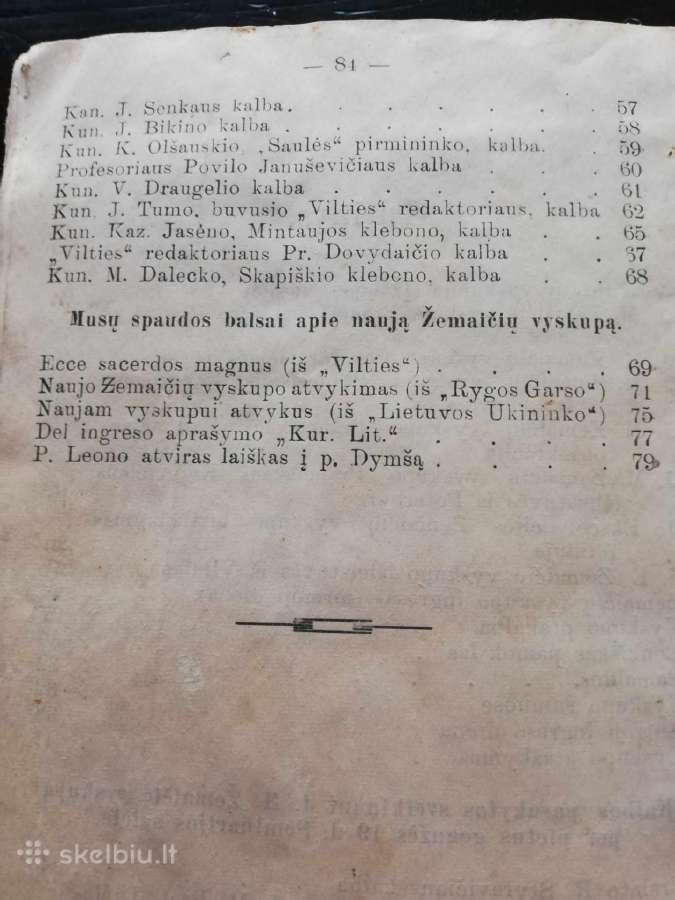 — 84 —
Kan. J. Senkaus kalba. . . . . . . 57
Kun. J. Bikino kalba . . . . . . . 58
Kun. K. Olšauskio, „Saulės“ pirmininko, kalba. . 59
Profesoriaus Povilo Januševičiaus kalba . . . 60
Kun. V. Draugelio kalba . . . . . . 61
Kun. J. Tumo, buvusio „Vilties“ redaktoriaus, kalba 62
Kun. Kaz. Jasėno, Mintaujos klebono, kalba . . 65
„Vilties“ redaktoriaus Pr. Dovydaičio kalba . . 37
Kun. M. Dalecko, Skapiškio klebono, kalba . . 68
Musų spaudos balsai apie naują Žemaičių vyskupą.
Ecce sacerdos magnus (iš „Vilties“) . . . . 69
Naujo Žemaičių vyskupo atvykimas (iš „Rygos Garso“) 71
Naujam vyskupui atvykus (iš „Lietuvos Ukininko“) 75
Del ingreso aprašymo „Kur. Lit.“ . . . . 77
P. Leono atviras laiškas į p. Dymšą . . . . 79
skelbiu.lt